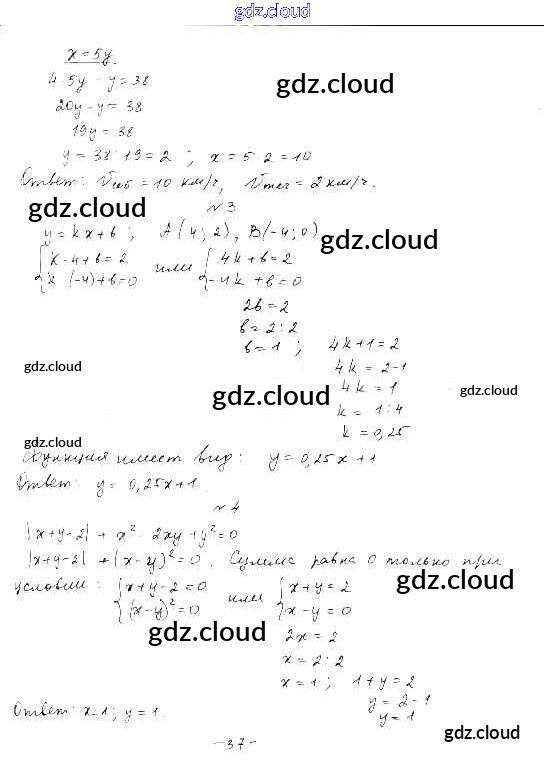 gdz.cloud
x = 5y
4·5y - y = 38
gdz.cloud
20y - y = 38
19y = 38
y = 38 : 19 = 2 ; x = 5·2 = 10
Ответ: Vсоб = 10 км/ч, Vтеч = 2 км/ч.
№3
gdz.cloud
y = kx + b ; A(4; 2), B(-4; 0)
gdz.cloud
{k·4 + b = 2 или {4k + b = 2
{k·(-4) + b = 0 {-4k + b = 0
2b = 2
b = 2 : 2
b = 1 ; 4k + 1 = 2
gdz.cloud
4k = 2 - 1
gdz.cloud
4k = 1
gdz.cloud
k = 1 : 4
k = 0,25
gdz.cloud
Функция имеет вид: y = 0,25x + 1
Ответ: y = 0,25x + 1.
№4
|x+y-2| + x² - 2xy + y² = 0
|x+y-2| + (x-y)² = 0. Сумма равна 0 только при
gdz.cloud
условии: {x+y-2 = 0 или {x+y = 2
{(x-y)² = 0 {x-y = 0
gdz.cloud
2x = 2
x = 2 : 2
x = 1 ; 1 + y = 2
y = 2 - 1
Ответ: x = 1; y = 1.
y = 1
gdz.cloud
-37-
gdz.cloud